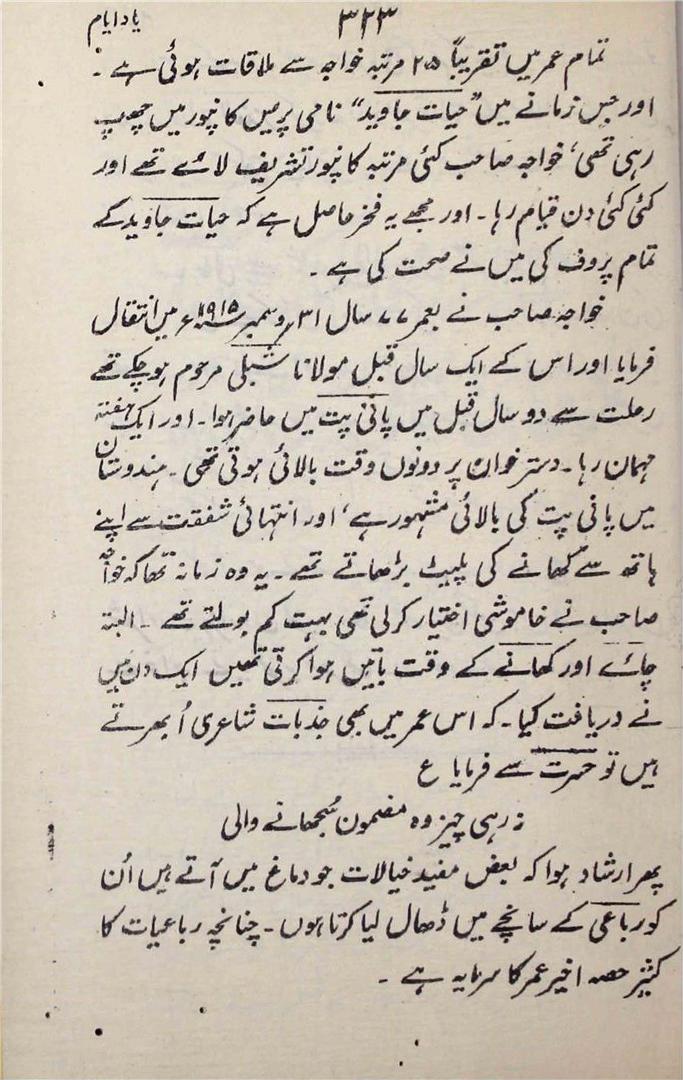 یاد ایام
۳۲۳
تمام عمر میں تقریباً ۲۵ مرتبہ خواجہ سے ملاقات ہوئی ہے ۔
اور جس زمانے میں "حیات جاوید" نامی پریس کانپور میں چھپ
رہی تھی، خواجہ صاحب کئی مرتبہ کانپور تشریف لائے تھے اور
کئی کئی دن قیام رہا ۔ اور مجھے یہ فخر حاصل ہے کہ حیات جاوید کے
تمام پروف کی میں نے صحت کی ہے ۔
خواجہ صاحب نے بعمر ۷۷ سال ۳۱ دسمبر ۱۹۱۵ء میں انتقال
فرمایا اور اس کے ایک سال قبل مولانا شبلی مرحوم ہو چکے تھے
رحلت سے دو سال قبل میں پانی پت میں حاضر ہوا ۔ اور ایک ہفتہ
مہمان رہا ۔ دستر خوان پر دونوں وقت بالائی ہوتی تھی ۔ ہندوستان
میں پانی پت کی بالائی مشہور ہے، اور انتہائی شفقت سے اپنے
ہاتھ سے کھانے کی پلیٹ بڑھاتے تھے ۔ یہ وہ زمانہ تھا کہ خواجہ
صاحب نے خاموشی اختیار کرلی تھی بہت کم بولتے تھے ۔ البتہ
چائے اور کھانے کے وقت باتیں ہوا کرتی تھیں ایک دن میں
نے دریافت کیا ۔ کہ اس عمر میں بھی جذبات شاعری اُبھرتے
ہیں تو حسرت سے فرمایا ع
نہ رہی چیز وہ مضمون سُجھانے والی
پھر ارشاد ہوا کہ بعض مفید خیالات جو دماغ میں آتے ہیں اُن
کو رباعی کے سانچے میں ڈھال لیا کرتا ہوں ۔ چنانچہ رباعیات کا
کثیر حصہ اخیر عمر کا سرمایہ ہے ۔